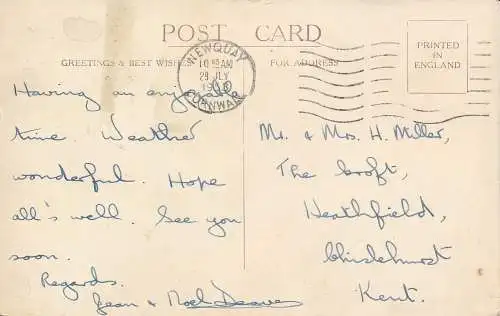 POST CARD
GREETINGS & BEST WISHES
FOR ADDRESS
PRINTED
IN
ENGLAND
NEWQUAY
CORNWALL
Having an enjoyable
time. Weather
wonderful. Hope
all's well. See you
soon.
Regards.
Jean & Noel Deaves
Mr. & Mrs. H. Miller,
The Croft,
Heathfield,
Chislehurst
Kent.